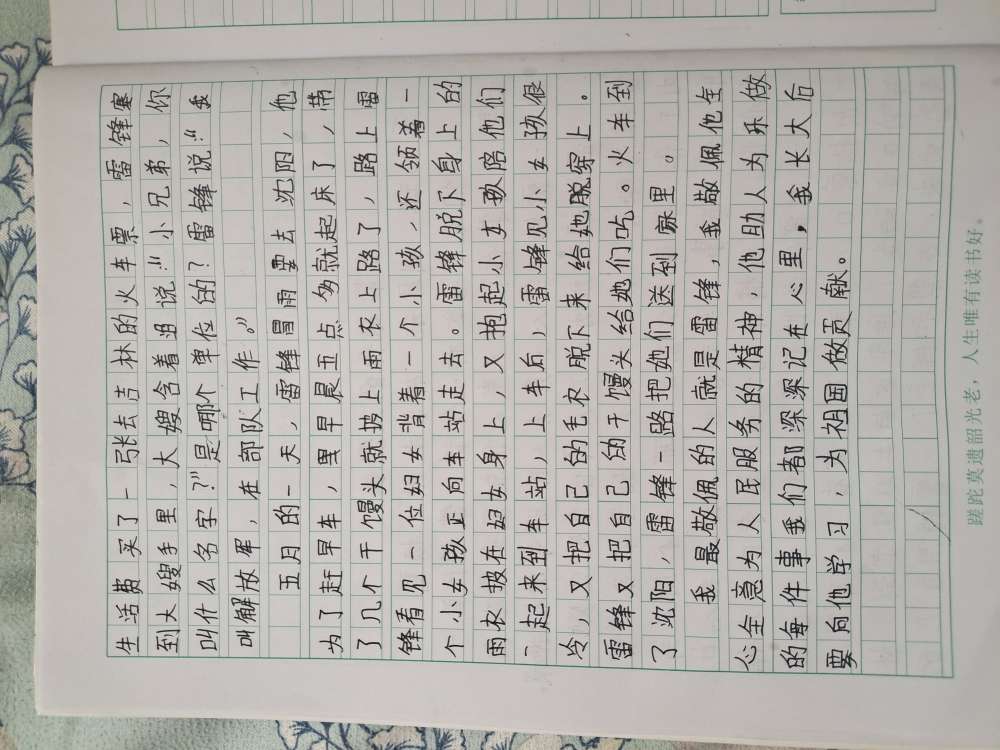 生活费买了一张去吉林的火车票，雷锋塞
到大嫂手里，大嫂含着泪说：“小兄弟，你
叫什么名字？”是哪个单位的？雷锋说：“我
叫解放军，在部队工作。”
五月的一天，雷锋冒雨要去沈阳，他
为了赶早车，里早晨五点多就起床了，带
了几个干馒头就披上雨衣上路了，路上雷
锋看见一位妇女背着一个小孩，还领着一
个小女孩正向车站走去。雷锋脱下身上的
雨衣披在妇女身上，又抱起小女孩陪他们
一起来到车站，上车后，雷锋见小女孩很
冷，又把自己的毛衣脱下来给她脱穿上。
雷锋又把自己的干馒头给她们吃。火车到
了沈阳，雷锋一路把她们送到家里。
我最敬佩的人就是雷锋，我敬佩他全
心全意为人民服务的精神，他助人为乐做
的每件事我们都深深记在心里，我长大后
要向他学习，为祖国做贡献。
蹉跎莫遗韶光老，人生唯有读书好。